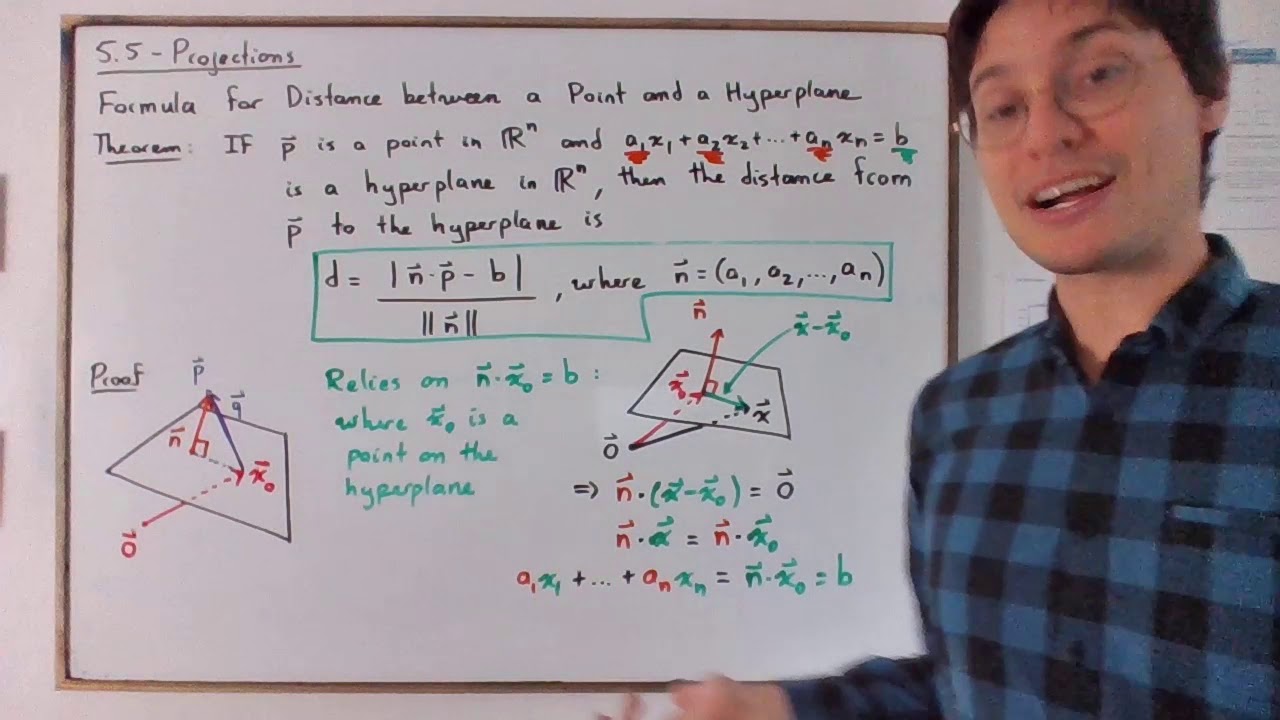 5.5 - Projections
Formula for Distance between a Point and a Hyperplane
Theorem: If p⃗ is a point in ℝⁿ and a₁x₁+a₂x₂+...+aₙxₙ=b
is a hyperplane in ℝⁿ, then the distance from
p⃗ to the hyperplane is
d = |n⃗·p⃗ - b| / ||n⃗|| , where n⃗ = (a₁, a₂, ..., aₙ)
Proof
p⃗
q⃗
n⃗
x⃗₀
0⃗
Relies on n⃗·x⃗₀ = b :
where x⃗₀ is a
point on the
hyperplane
n⃗
x⃗-x⃗₀
x⃗₀
x⃗
0⃗
⇒ n⃗·(x⃗-x⃗₀) = 0⃗
n⃗·x⃗ = n⃗·x⃗₀
a₁x₁ + ... + aₙxₙ = n⃗·x⃗₀ = b